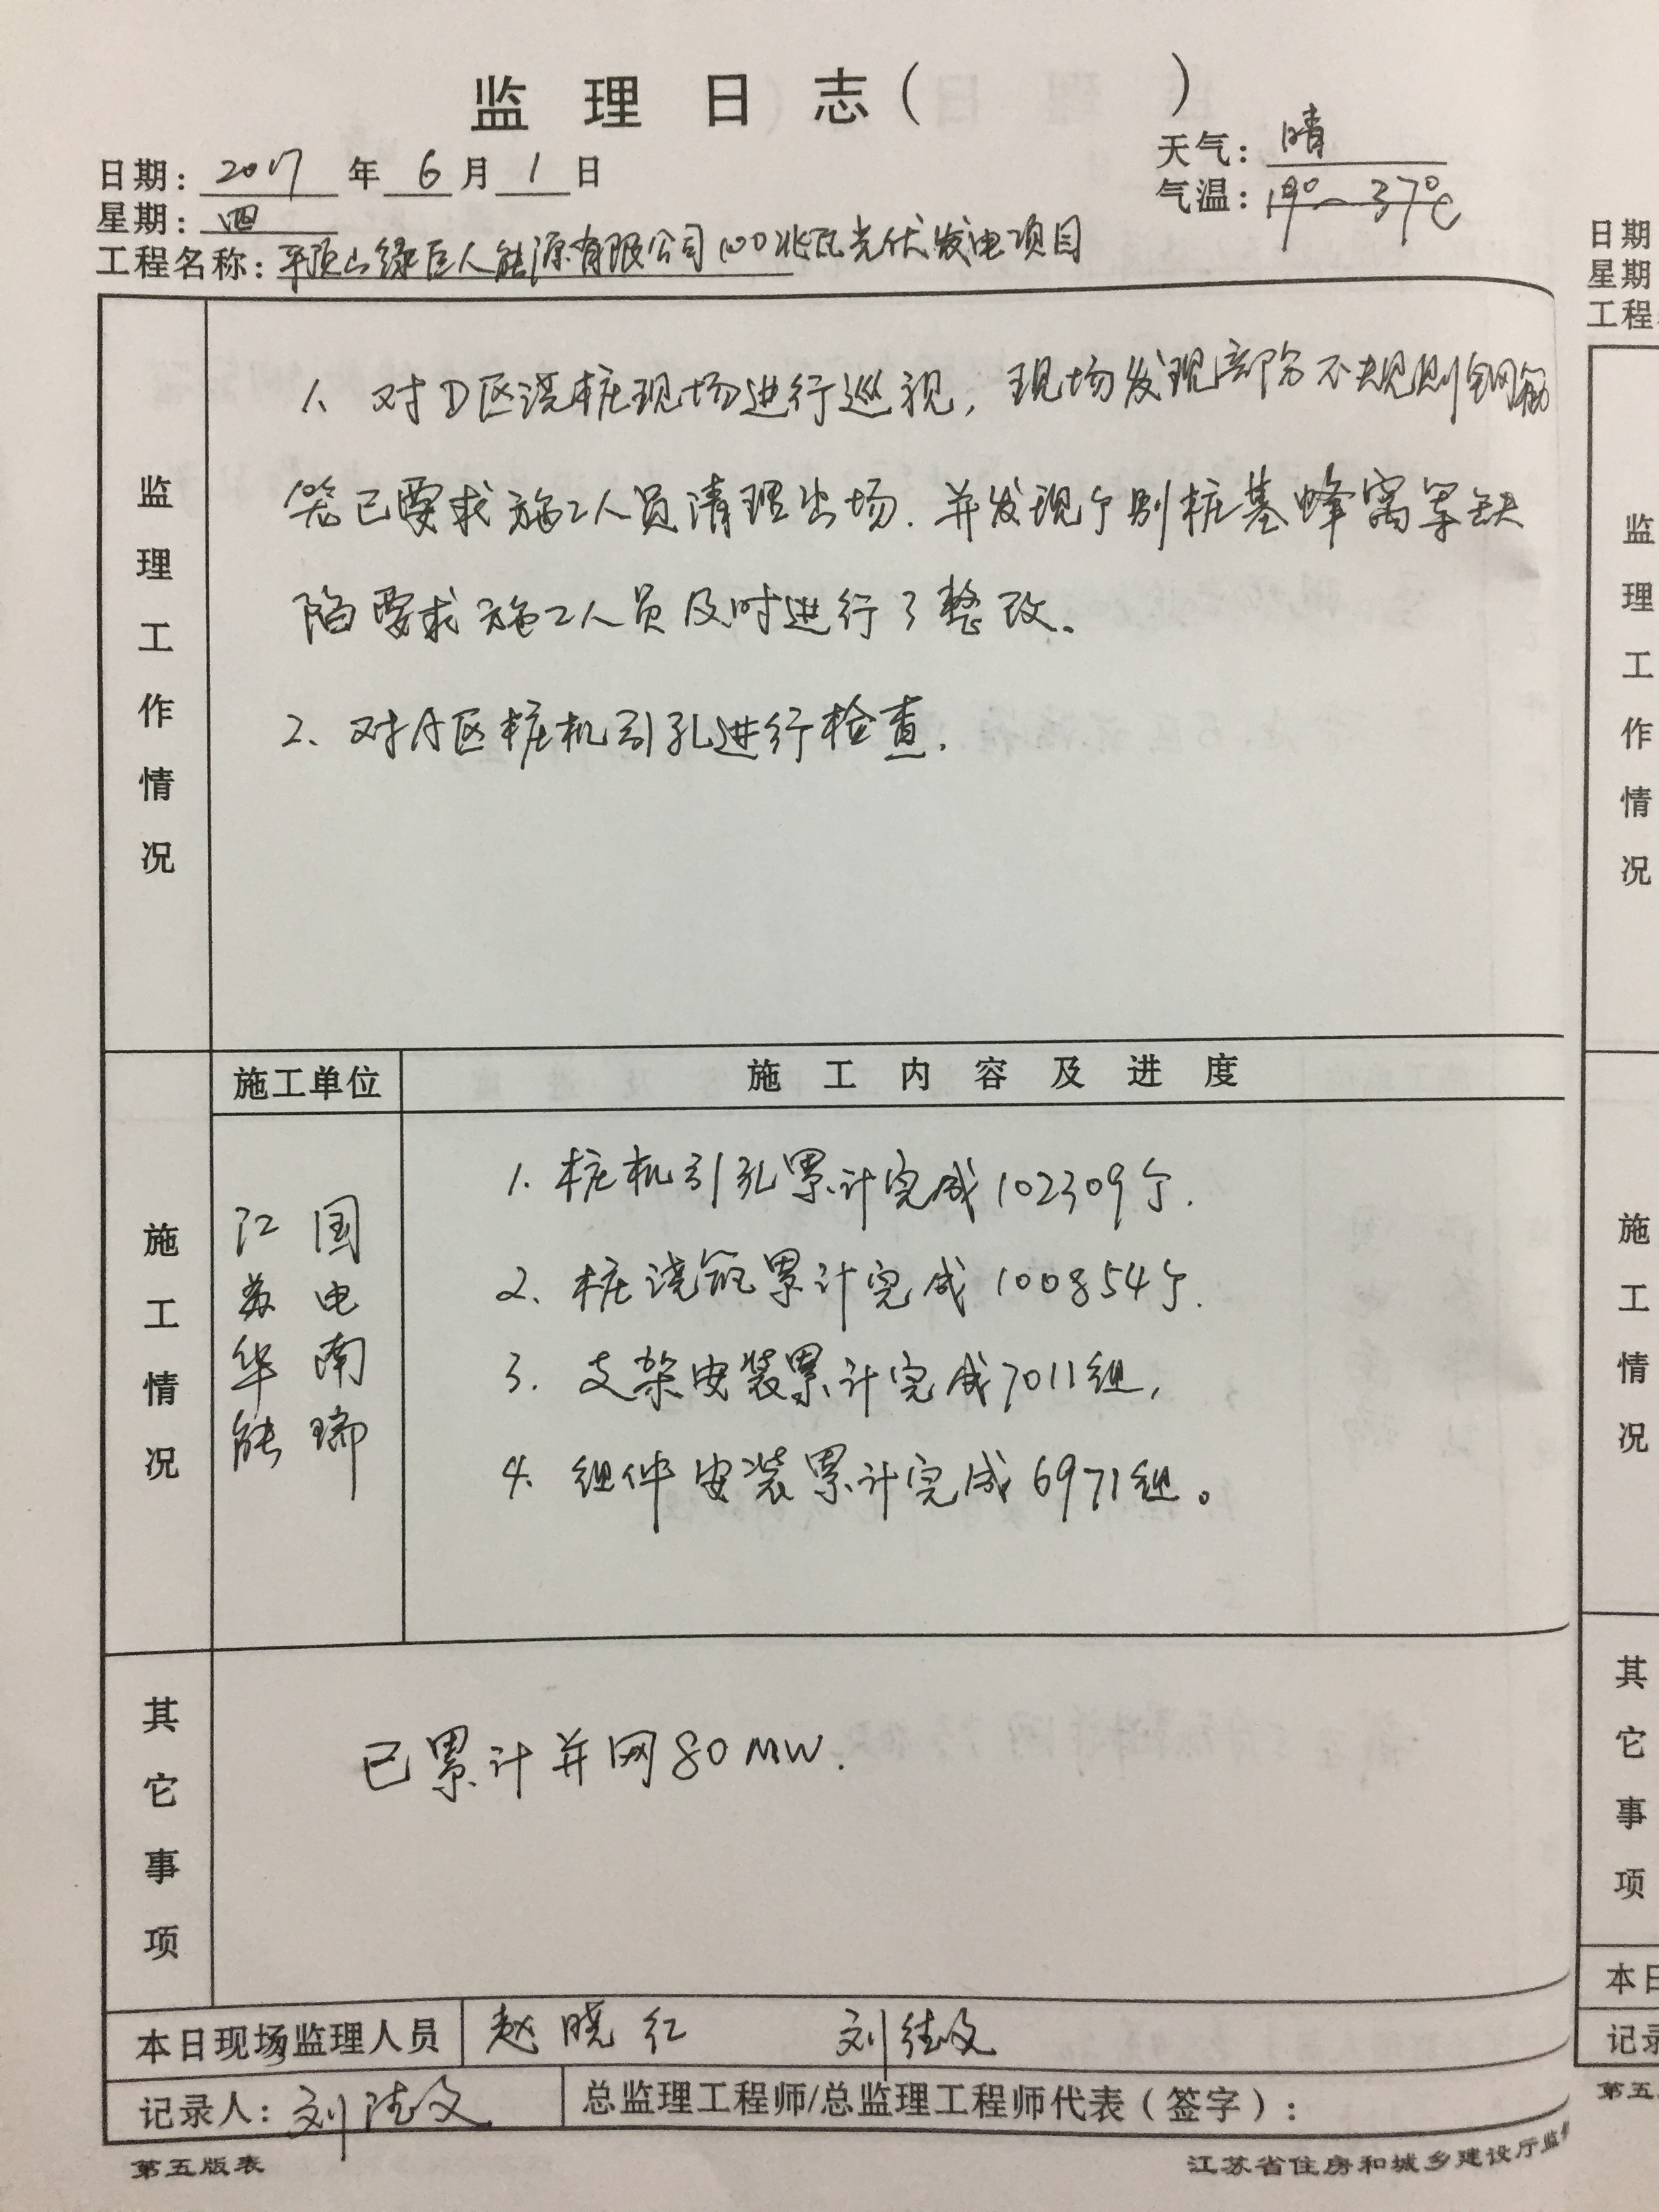 监理日志（ ）
日期：2017年6月1日
天气：晴
星期：四
气温：19°~37℃
工程名称：平顶山绿巨人能源有限公司100兆瓦光伏发电项目
监理工作情况
1、对D区浇桩现场进行巡视，现场发现部份不规则钢筋
笼已要求施工人员清理出场．并发现个别桩基蜂窝等缺
陷要求施工人员及时进行了整改。
2、对A区桩机引孔进行检查．
施工情况
施工单位
施工内容及进度
国电南瑞
江苏华能
1、桩机引孔累计完成102309个．
2、桩浇筑累计完成100854个．
3．支架安装累计完成7011组，
4、组件安装累计完成6971组。
其它事项
已累计并网80MW．
本日现场监理人员 赵晓红 刘
记录人：刘
总监理工程师/总监理工程师代表（签字）：
第五版表
江苏省住房和城乡建设厅监
日期
星期
工程
监理工作情况
施工情况
其它事项
本日
记录
第五